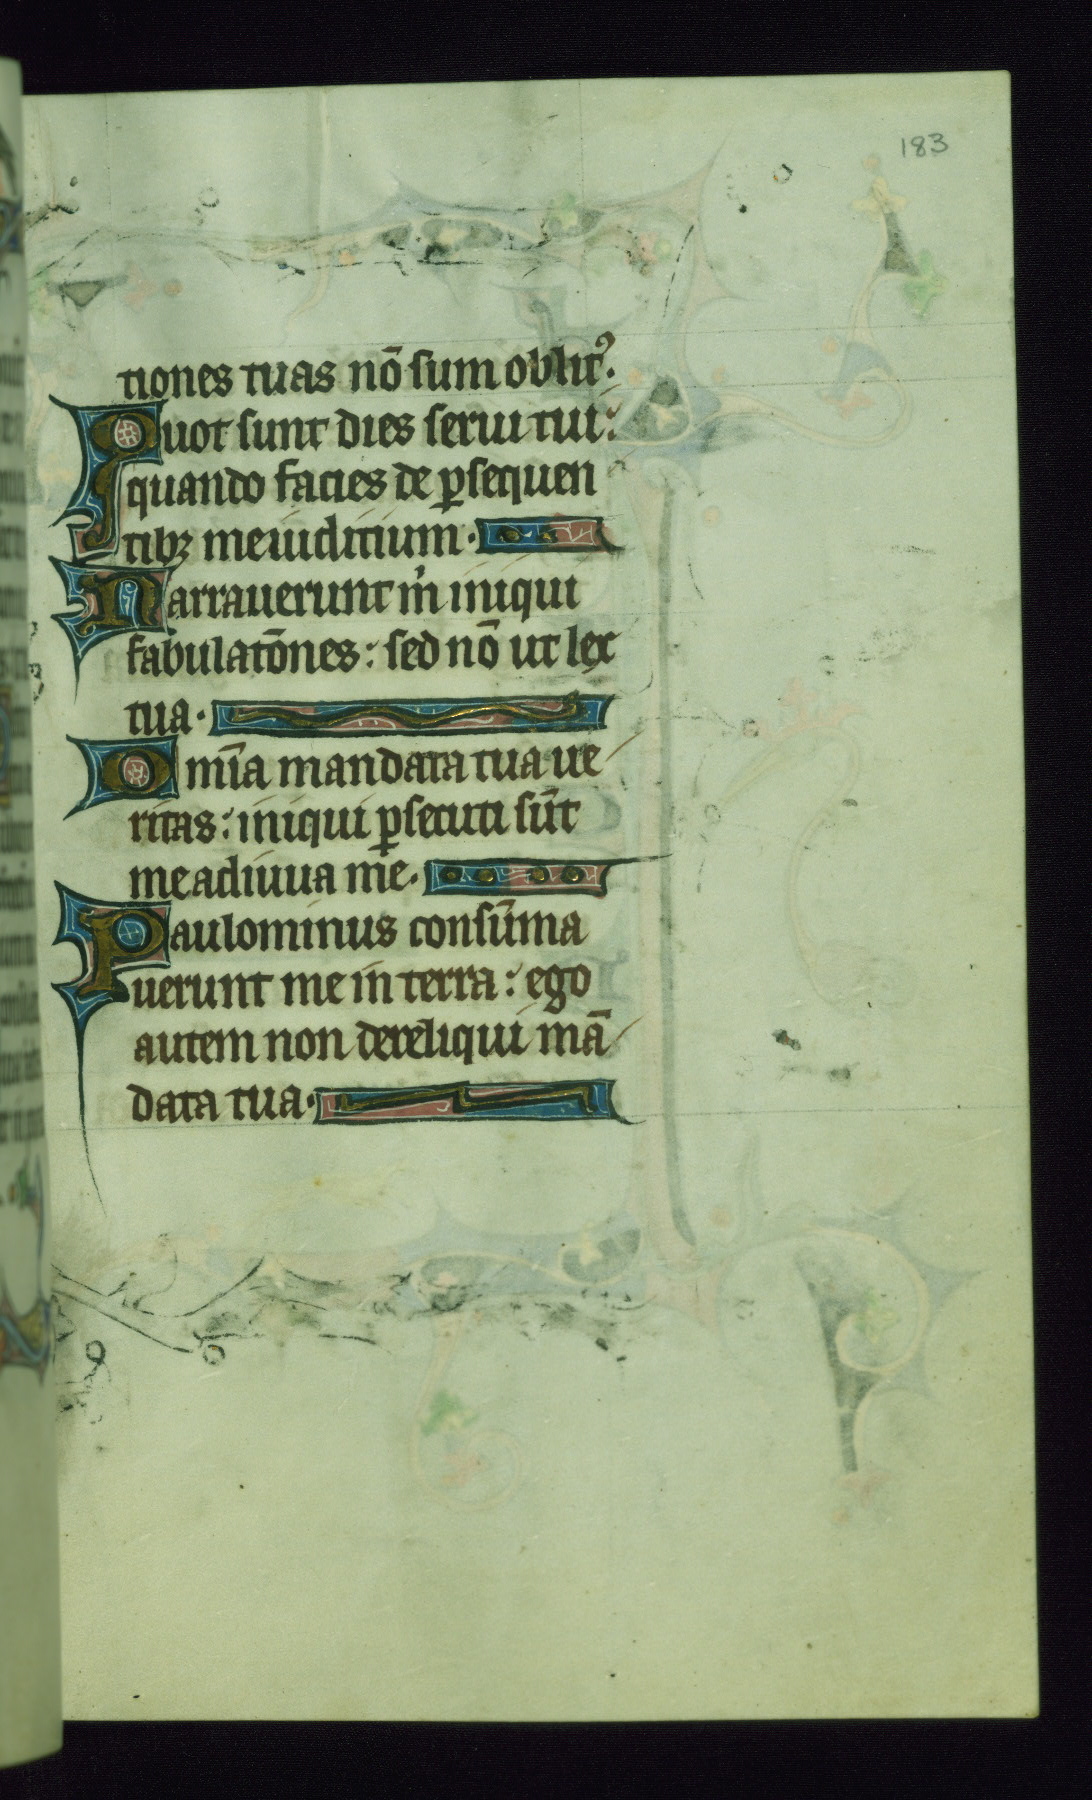 183
tiones tuas nō sum oblitꝰ.
Quot sunt dies serui tui:
quando facies de ꝑsequen
tibꝫ me iudicium.
Narrauerunt m̄ iniqui
fabulatōnes: sed nō ut lex
tua.
Om̄ia mandata tua ue
ritas: iniqui ꝑsecuti sūt
me adiuua me.
Paulominus consūma
uerunt me in terra: ego
autem non dereliqui mā
data tua.